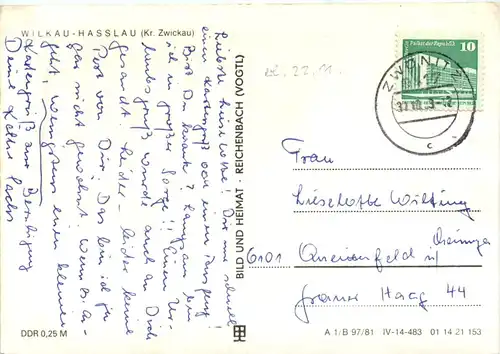 WILKAU-HASSLAU (Kr. Zwickau)
Liebste Lieselotte! Dir nur schnell
einen Kartengruß von einem Ausflug!
Bist Du krank? Langsam bin
ich in großer Sorge!! Einen Ur-
laubsgruß wurde auch an Dich
gesandt leider - leider keine
Post von Dir! Das bin ich ja
gar nicht gewohnt. Wenn es
geht, wenigstens einen kleinen
Kartengruß zur Beruhigung
Deine Käthe
DDR 0,25 M
BILD UND HEIMAT · REICHENBACH (VOGTL)
22. 11.
Palast der Republik
DDR 10
ZWÖNITZ
c
Frau
Lieselotte
6101
Meiningen
44
A 1/B 97/81 IV-14-483 01 14 21 153